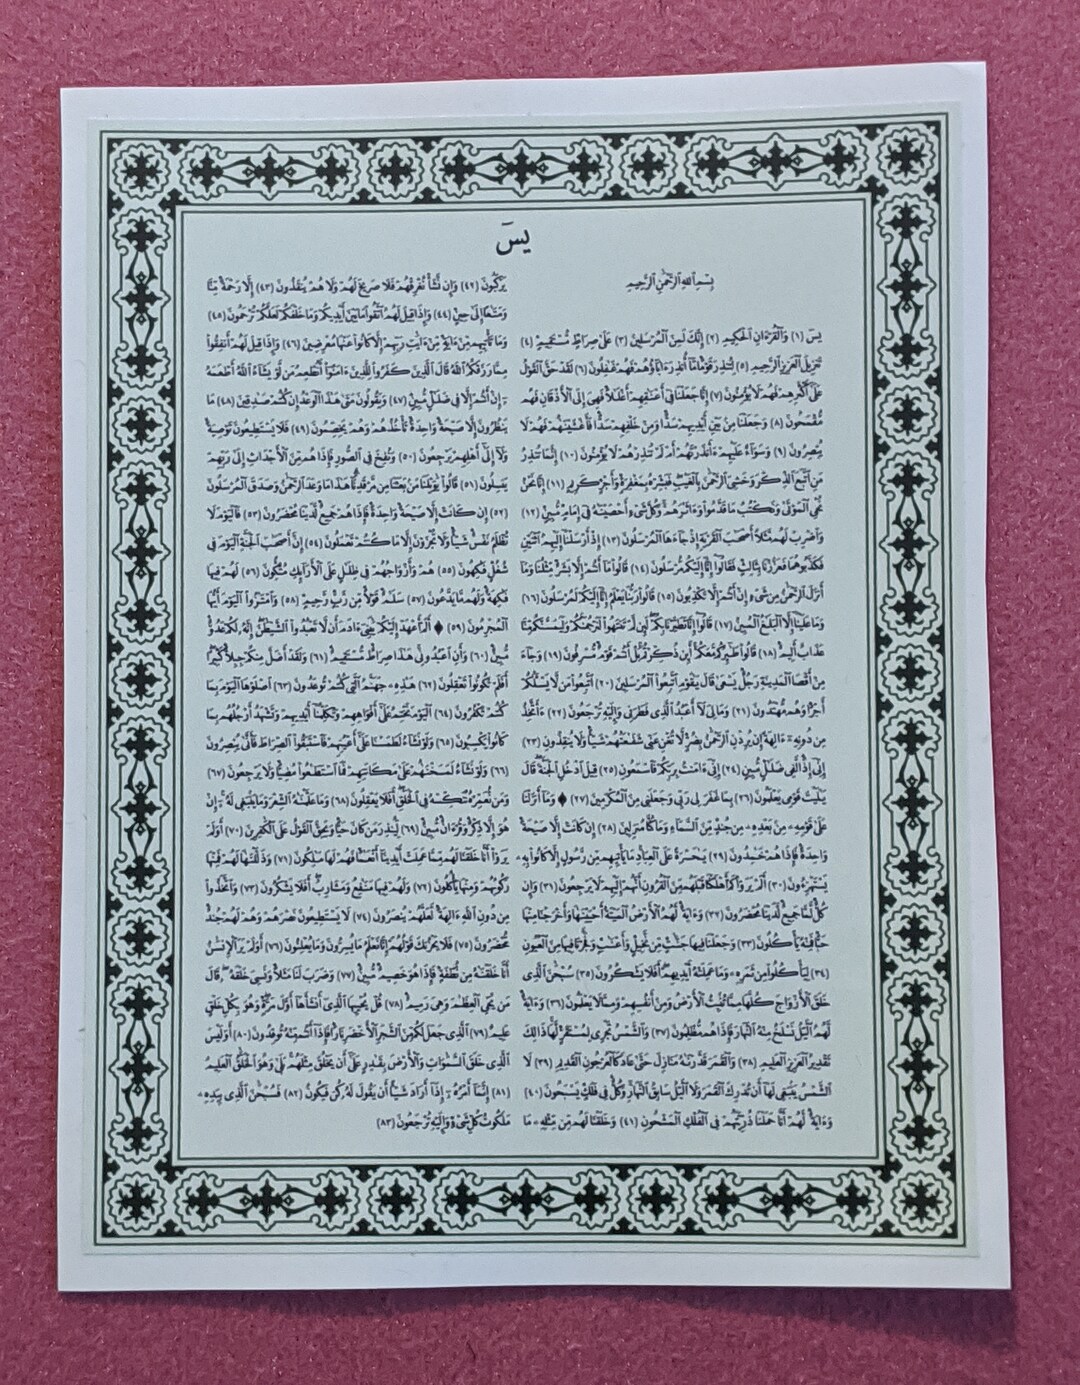 يسَ
بِسْمِ ٱللَّهِ ٱلرَّحْمَٰنِ ٱلرَّحِيمِ
يسٓ (١) وَٱلْقُرْءَانِ ٱلْحَكِيمِ (٢) إِنَّكَ لَمِنَ ٱلْمُرْسَلِينَ (٣) عَلَىٰ صِرَٰطٍ مُّسْتَقِيمٍ (٤)
تَنزِيلَ ٱلْعَزِيزِ ٱلرَّحِيمِ (٥) لِتُنذِرَ قَوْمًا مَّآ أُنذِرَ ءَابَآؤُهُمْ فَهُمْ غَٰفِلُونَ (٦) لَقَدْ حَقَّ ٱلْقَوْلُ
عَلَىٰٓ أَكْثَرِهِمْ فَهُمْ لَا يُؤْمِنُونَ (٧) إِنَّا جَعَلْنَا فِىٓ أَعْنَٰقِهِمْ أَغْلَٰلًا فَهِىَ إِلَى ٱلْأَذْقَانِ فَهُم
مُّقْمَحُونَ (٨) وَجَعَلْنَا مِنۢ بَيْنِ أَيْدِيهِمْ سَدًّا وَمِنْ خَلْفِهِمْ سَدًّا فَأَغْشَيْنَٰهُمْ فَهُمْ لَا
يُبْصِرُونَ (٩) وَسَوَآءٌ عَلَيْهِمْ ءَأَنذَرْتَهُمْ أَمْ لَمْ تُنذِرْهُمْ لَا يُؤْمِنُونَ (١٠) إِنَّمَا تُنذِرُ
مَنِ ٱتَّبَعَ ٱلذِّكْرَ وَخَشِىَ ٱلرَّحْمَٰنَ بِٱلْغَيْبِ فَبَشِّرْهُ بِمَغْفِرَةٍ وَأَجْرٍ كَرِيمٍ (١١) إِنَّا نَحْنُ
نُحْىِ ٱلْمَوْتَىٰ وَنَكْتُبُ مَا قَدَّمُوا۟ وَءَاثَٰرَهُمْ وَكُلَّ شَىْءٍ أَحْصَيْنَٰهُ فِىٓ إِمَامٍ مُّبِينٍ (١٢)
وَٱضْرِبْ لَهُم مَّثَلًا أَصْحَٰبَ ٱلْقَرْيَةِ إِذْ جَآءَهَا ٱلْمُرْسَلُونَ (١٣) إِذْ أَرْسَلْنَآ إِلَيْهِمُ ٱثْنَيْنِ
فَكَذَّبُوهُمَا فَعَزَّزْنَا بِثَالِثٍ فَقَالُوٓا۟ إِنَّآ إِلَيْكُم مُّرْسَلُونَ (١٤) قَالُوا۟ مَآ أَنتُمْ إِلَّا بَشَرٌ مِّثْلُنَا وَمَآ
أَنزَلَ ٱلرَّحْمَٰنُ مِن شَىْءٍ إِنْ أَنتُمْ إِلَّا تَكْذِبُونَ (١٥) قَالُوا۟ رَبُّنَا يَعْلَمُ إِنَّآ إِلَيْكُمْ لَمُرْسَلُونَ (١٦)
وَمَا عَلَيْنَآ إِلَّا ٱلْبَلَٰغُ ٱلْمُبِينُ (١٧) قَالُوٓا۟ إِنَّا تَطَيَّرْنَا بِكُمْ لَئِن لَّمْ تَنتَهُوا۟ لَنَرْجُمَنَّكُمْ وَلَيَمَسَّنَّكُم مِّنَّا
عَذَابٌ أَلِيمٌ (١٨) قَالُوا۟ طَٰٓئِرُكُم مَّعَكُمْ أَئِن ذُكِّرْتُم بَلْ أَنتُمْ قَوْمٌ مُّسْرِفُونَ (١٩) وَجَآءَ
مِنْ أَقْصَا ٱلْمَدِينَةِ رَجُلٌ يَسْعَىٰ قَالَ يَٰقَوْمِ ٱتَّبِعُوا۟ ٱلْمُرْسَلِينَ (٢٠) ٱتَّبِعُوا۟ مَن لَّا يَسْـَٔلُكُمْ
أَجْرًا وَهُم مُّهْتَدُونَ (٢١) وَمَا لِىَ لَآ أَعْبُدُ ٱلَّذِى فَطَرَنِى وَإِلَيْهِ تُرْجَعُونَ (٢٢) ءَأَتَّخِذُ
مِن دُونِهِۦٓ ءَالِهَةً إِن يُرِدْنِ ٱلرَّحْمَٰنُ بِضُرٍّ لَّا تُغْنِ عَنِّى شَفَٰعَتُهُمْ شَيْـًٔا وَلَا يُنقِذُونِ (٢٣)
إِنِّىٓ إِذًا لَّفِى ضَلَٰلٍ مُّبِينٍ (٢٤) إِنِّىٓ ءَامَنتُ بِرَبِّكُمْ فَٱسْمَعُونِ (٢٥) قِيلَ ٱدْخُلِ ٱلْجَنَّةَ قَالَ
يَٰلَيْتَ قَوْمِى يَعْلَمُونَ (٢٦) بِمَا غَفَرَ لِى رَبِّى وَجَعَلَنِى مِنَ ٱلْمُكْرَمِينَ (٢٧) ♦ وَمَآ أَنزَلْنَا
عَلَىٰ قَوْمِهِۦ مِنۢ بَعْدِهِۦ مِن جُندٍ مِّنَ ٱلسَّمَآءِ وَمَا كُنَّا مُنزِلِينَ (٢٨) إِن كَانَتْ إِلَّا صَيْحَةً
وَٰحِدَةً فَإِذَا هُمْ خَٰمِدُونَ (٢٩) يَٰحَسْرَةً عَلَى ٱلْعِبَادِ مَا يَأْتِيهِم مِّن رَّسُولٍ إِلَّا كَانُوا۟ بِهِۦ
يَسْتَهْزِءُونَ (٣٠) أَلَمْ يَرَوْا۟ كَمْ أَهْلَكْنَا قَبْلَهُم مِّنَ ٱلْقُرُونِ أَنَّهُمْ إِلَيْهِمْ لَا يَرْجِعُونَ (٣١) وَإِن
كُلٌّ لَّمَّا جَمِيعٌ لَّدَيْنَا مُحْضَرُونَ (٣٢) وَءَايَةٌ لَّهُمُ ٱلْأَرْضُ ٱلْمَيْتَةُ أَحْيَيْنَٰهَا وَأَخْرَجْنَا مِنْهَا
حَبًّا فَمِنْهُ يَأْكُلُونَ (٣٣) وَجَعَلْنَا فِيهَا جَنَّٰتٍ مِّن نَّخِيلٍ وَأَعْنَٰبٍ وَفَجَّرْنَا فِيهَا مِنَ ٱلْعُيُونِ
(٣٤) لِيَأْكُلُوا۟ مِن ثَمَرِهِۦ وَمَا عَمِلَتْهُ أَيْدِيهِمْ أَفَلَا يَشْكُرُونَ (٣٥) سُبْحَٰنَ ٱلَّذِى
خَلَقَ ٱلْأَزْوَٰجَ كُلَّهَا مِمَّا تُنۢبِتُ ٱلْأَرْضُ وَمِنْ أَنفُسِهِمْ وَمِمَّا لَا يَعْلَمُونَ (٣٦) وَءَايَةٌ
لَّهُمُ ٱلَّيْلُ نَسْلَخُ مِنْهُ ٱلنَّهَارَ فَإِذَا هُم مُّظْلِمُونَ (٣٧) وَٱلشَّمْسُ تَجْرِى لِمُسْتَقَرٍّ لَّهَا ذَٰلِكَ
تَقْدِيرُ ٱلْعَزِيزِ ٱلْعَلِيمِ (٣٨) وَٱلْقَمَرَ قَدَّرْنَٰهُ مَنَازِلَ حَتَّىٰ عَادَ كَٱلْعُرْجُونِ ٱلْقَدِيمِ (٣٩) لَا
ٱلشَّمْسُ يَنۢبَغِى لَهَآ أَن تُدْرِكَ ٱلْقَمَرَ وَلَا ٱلَّيْلُ سَابِقُ ٱلنَّهَارِ وَكُلٌّ فِى فَلَكٍ يَسْبَحُونَ (٤٠)
وَءَايَةٌ لَّهُمْ أَنَّا حَمَلْنَا ذُرِّيَّتَهُمْ فِى ٱلْفُلْكِ ٱلْمَشْحُونِ (٤١) وَخَلَقْنَا لَهُم مِّن مِّثْلِهِۦ مَا
يَرْكَبُونَ (٤٢) وَإِن نَّشَأْ نُغْرِقْهُمْ فَلَا صَرِيخَ لَهُمْ وَلَا هُمْ يُنقَذُونَ (٤٣) إِلَّا رَحْمَةً مِّنَّا
وَمَتَٰعًا إِلَىٰ حِينٍ (٤٤) وَإِذَا قِيلَ لَهُمُ ٱتَّقُوا۟ مَا بَيْنَ أَيْدِيكُمْ وَمَا خَلْفَكُمْ لَعَلَّكُمْ تُرْحَمُونَ (٤٥)
وَمَا تَأْتِيهِم مِّنْ ءَايَةٍ مِّنْ ءَايَٰتِ رَبِّهِمْ إِلَّا كَانُوا۟ عَنْهَا مُعْرِضِينَ (٤٦) وَإِذَا قِيلَ لَهُمْ أَنفِقُوا۟
مِمَّا رَزَقَكُمُ ٱللَّهُ قَالَ ٱلَّذِينَ كَفَرُوا۟ لِلَّذِينَ ءَامَنُوٓا۟ أَنُطْعِمُ مَن لَّوْ يَشَآءُ ٱللَّهُ أَطْعَمَهُ
ٓۥ إِنْ أَنتُمْ إِلَّا فِى ضَلَٰلٍ مُّبِينٍ (٤٧) وَيَقُولُونَ مَتَىٰ هَٰذَا ٱلْوَعْدُ إِن كُنتُمْ صَٰدِقِينَ (٤٨) مَا
يَنظُرُونَ إِلَّا صَيْحَةً وَٰحِدَةً تَأْخُذُهُمْ وَهُمْ يَخِصِّمُونَ (٤٩) فَلَا يَسْتَطِيعُونَ تَوْصِيَةً
وَلَآ إِلَىٰٓ أَهْلِهِمْ يَرْجِعُونَ (٥٠) وَنُفِخَ فِى ٱلصُّورِ فَإِذَا هُم مِّنَ ٱلْأَجْدَاثِ إِلَىٰ رَبِّهِمْ
يَنسِلُونَ (٥١) قَالُوا۟ يَٰوَيْلَنَا مَنۢ بَعَثَنَا مِن مَّرْقَدِنَا هَٰذَا مَا وَعَدَ ٱلرَّحْمَٰنُ وَصَدَقَ ٱلْمُرْسَلُونَ
(٥٢) إِن كَانَتْ إِلَّا صَيْحَةً وَٰحِدَةً فَإِذَا هُمْ جَمِيعٌ لَّدَيْنَا مُحْضَرُونَ (٥٣) فَٱلْيَوْمَ لَا
تُظْلَمُ نَفْسٌ شَيْـًٔا وَلَا تُجْزَوْنَ إِلَّا مَا كُنتُمْ تَعْمَلُونَ (٥٤) إِنَّ أَصْحَٰبَ ٱلْجَنَّةِ ٱلْيَوْمَ فِى
شُغُلٍ فَٰكِهُونَ (٥٥) هُمْ وَأَزْوَٰجُهُمْ فِى ظِلَٰلٍ عَلَى ٱلْأَرَآئِكِ مُتَّكِـُٔونَ (٥٦) لَهُمْ فِيهَا
فَٰكِهَةٌ وَلَهُم مَّا يَدَّعُونَ (٥٧) سَلَٰمٌ قَوْلًا مِّن رَّبٍّ رَّحِيمٍ (٥٨) وَٱمْتَٰزُوا۟ ٱلْيَوْمَ أَيُّهَا
ٱلْمُجْرِمُونَ (٥٩) ♦ أَلَمْ أَعْهَدْ إِلَيْكُمْ يَٰبَنِىٓ ءَادَمَ أَن لَّا تَعْبُدُوا۟ ٱلشَّيْطَٰنَ إِنَّهُۥ لَكُمْ عَدُوٌّ
مُّبِينٌ (٦٠) وَأَنِ ٱعْبُدُونِى هَٰذَا صِرَٰطٌ مُّسْتَقِيمٌ (٦١) وَلَقَدْ أَضَلَّ مِنكُمْ جِبِلًّا كَثِيرًا
أَفَلَمْ تَكُونُوا۟ تَعْقِلُونَ (٦٢) هَٰذِهِۦ جَهَنَّمُ ٱلَّتِى كُنتُمْ تُوعَدُونَ (٦٣) ٱصْلَوْهَا ٱلْيَوْمَ بِمَا
كُنتُمْ تَكْفُرُونَ (٦٤) ٱلْيَوْمَ نَخْتِمُ عَلَىٰٓ أَفْوَٰهِهِمْ وَتُكَلِّمُنَآ أَيْدِيهِمْ وَتَشْهَدُ أَرْجُلُهُم بِمَا
كَانُوا۟ يَكْسِبُونَ (٦٥) وَلَوْ نَشَآءُ لَطَمَسْنَا عَلَىٰٓ أَعْيُنِهِمْ فَٱسْتَبَقُوا۟ ٱلصِّرَٰطَ فَأَنَّىٰ يُبْصِرُونَ
(٦٦) وَلَوْ نَشَآءُ لَمَسَخْنَٰهُمْ عَلَىٰ مَكَانَتِهِمْ فَمَا ٱسْتَطَٰعُوا۟ مُضِيًّا وَلَا يَرْجِعُونَ (٦٧)
وَمَن نُّعَمِّرْهُ نُنَكِّسْهُ فِى ٱلْخَلْقِ أَفَلَا يَعْقِلُونَ (٦٨) وَمَا عَلَّمْنَٰهُ ٱلشِّعْرَ وَمَا يَنۢبَغِى لَهُۥٓ إِنْ
هُوَ إِلَّا ذِكْرٌ وَقُرْءَانٌ مُّبِينٌ (٦٩) لِّيُنذِرَ مَن كَانَ حَيًّا وَيَحِقَّ ٱلْقَوْلُ عَلَى ٱلْكَٰفِرِينَ (٧٠) أَوَلَمْ
يَرَوْا۟ أَنَّا خَلَقْنَا لَهُم مِّمَّا عَمِلَتْ أَيْدِينَآ أَنْعَٰمًا فَهُمْ لَهَا مَٰلِكُونَ (٧١) وَذَلَّلْنَٰهَا لَهُمْ فَمِنْهَا
رَكُوبُهُمْ وَمِنْهَا يَأْكُلُونَ (٧٢) وَلَهُمْ فِيهَا مَنَٰفِعُ وَمَشَارِبُ أَفَلَا يَشْكُرُونَ (٧٣) وَٱتَّخَذُوا۟
مِن دُونِ ٱللَّهِ ءَالِهَةً لَّعَلَّهُمْ يُنصَرُونَ (٧٤) لَا يَسْتَطِيعُونَ نَصْرَهُمْ وَهُمْ لَهُمْ جُندٌ
مُّحْضَرُونَ (٧٥) فَلَا يَحْزُنكَ قَوْلُهُمْ إِنَّا نَعْلَمُ مَا يُسِرُّونَ وَمَا يُعْلِنُونَ (٧٦) أَوَلَمْ يَرَ ٱلْإِنسَٰنُ
أَنَّا خَلَقْنَٰهُ مِن نُّطْفَةٍ فَإِذَا هُوَ خَصِيمٌ مُّبِينٌ (٧٧) وَضَرَبَ لَنَا مَثَلًا وَنَسِىَ خَلْقَهُۥ قَالَ
مَن يُحْىِ ٱلْعِظَٰمَ وَهِىَ رَمِيمٌ (٧٨) قُلْ يُحْيِيهَا ٱلَّذِىٓ أَنشَأَهَآ أَوَّلَ مَرَّةٍ وَهُوَ بِكُلِّ خَلْقٍ
عَلِيمٌ (٧٩) ٱلَّذِى جَعَلَ لَكُم مِّنَ ٱلشَّجَرِ ٱلْأَخْضَرِ نَارًا فَإِذَآ أَنتُم مِّنْهُ تُوقِدُونَ (٨٠) أَوَلَيْسَ
ٱلَّذِى خَلَقَ ٱلسَّمَٰوَٰتِ وَٱلْأَرْضَ بِقَٰدِرٍ عَلَىٰٓ أَن يَخْلُقَ مِثْلَهُم بَلَىٰ وَهُوَ ٱلْخَلَّٰقُ ٱلْعَلِيمُ
(٨١) إِنَّمَآ أَمْرُهُۥٓ إِذَآ أَرَادَ شَيْـًٔا أَن يَقُولَ لَهُۥ كُن فَيَكُونُ (٨٢) فَسُبْحَٰنَ ٱلَّذِى بِيَدِهِۦ
مَلَكُوتُ كُلِّ شَىْءٍ وَإِلَيْهِ تُرْجَعُونَ (٨٣)